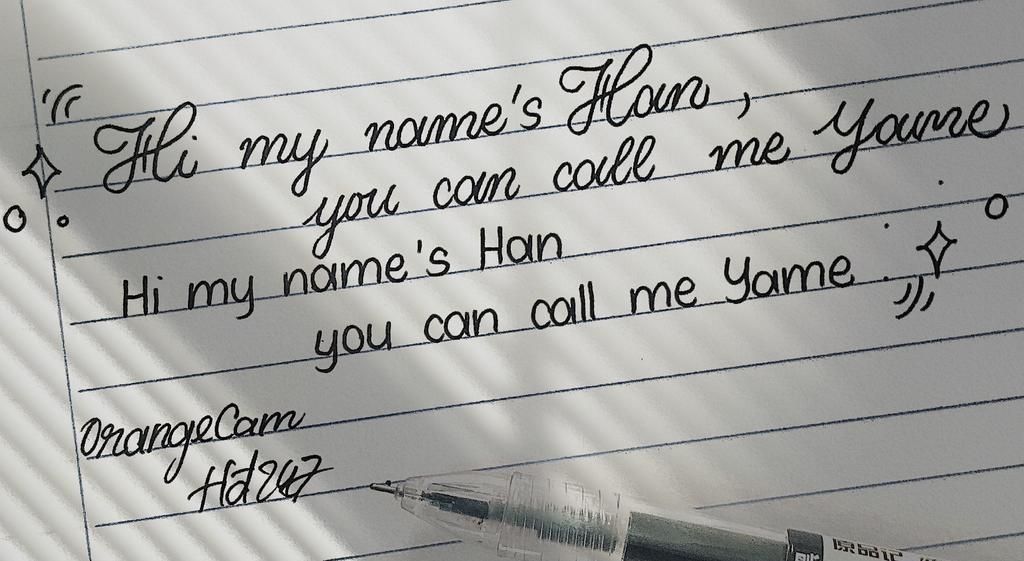 Hi my name's Han,
you can call me Yame
Hi my name's Han
you can call me Yame.
OrangeCam
Hd247